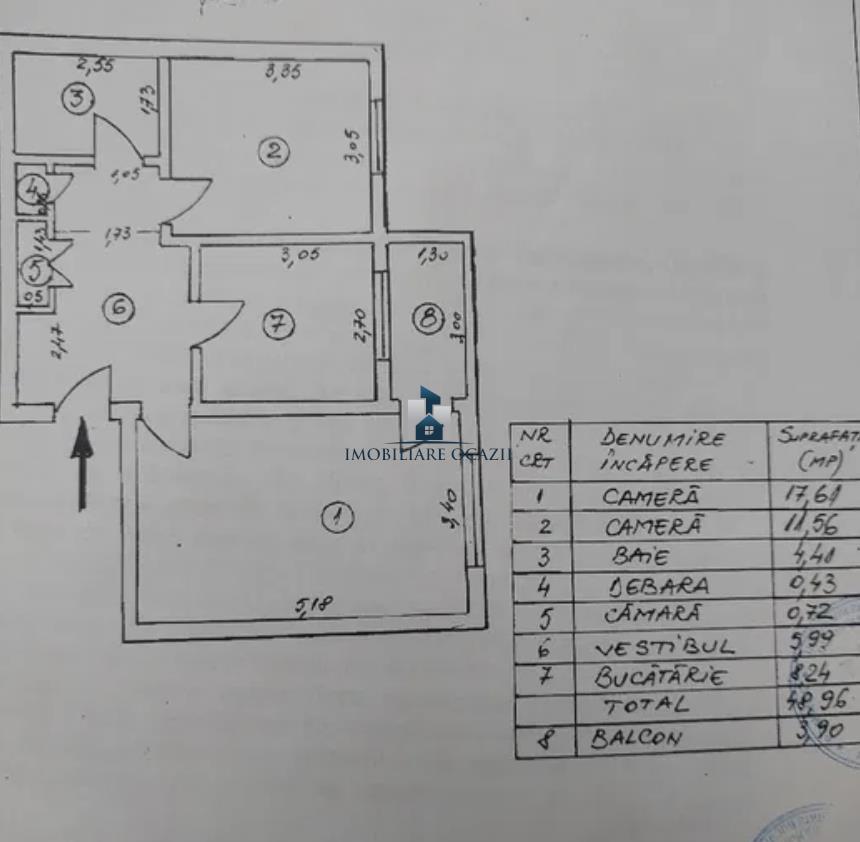 2,55
3,35
3
1,73
2
3,05
4
1,05
1,43
1,73
5
05
3,05
1,30
6
7
8
2,47
2,70
3,00
IMOBILIARE OCAZII
1
3,40
5,18
NR CRT DENUMIRE ÎNCĂPERE SUPRAFAȚA (MP)
1 CAMERĂ 17,61
2 CAMERĂ 11,56
3 BAIE 4,41
4 DEBARA 0,43
5 CĂMARĂ 0,72
6 VESTIBUL 5,99
7 BUCĂTĂRIE 8,24
TOTAL 48,96
8 BALCON 3,90